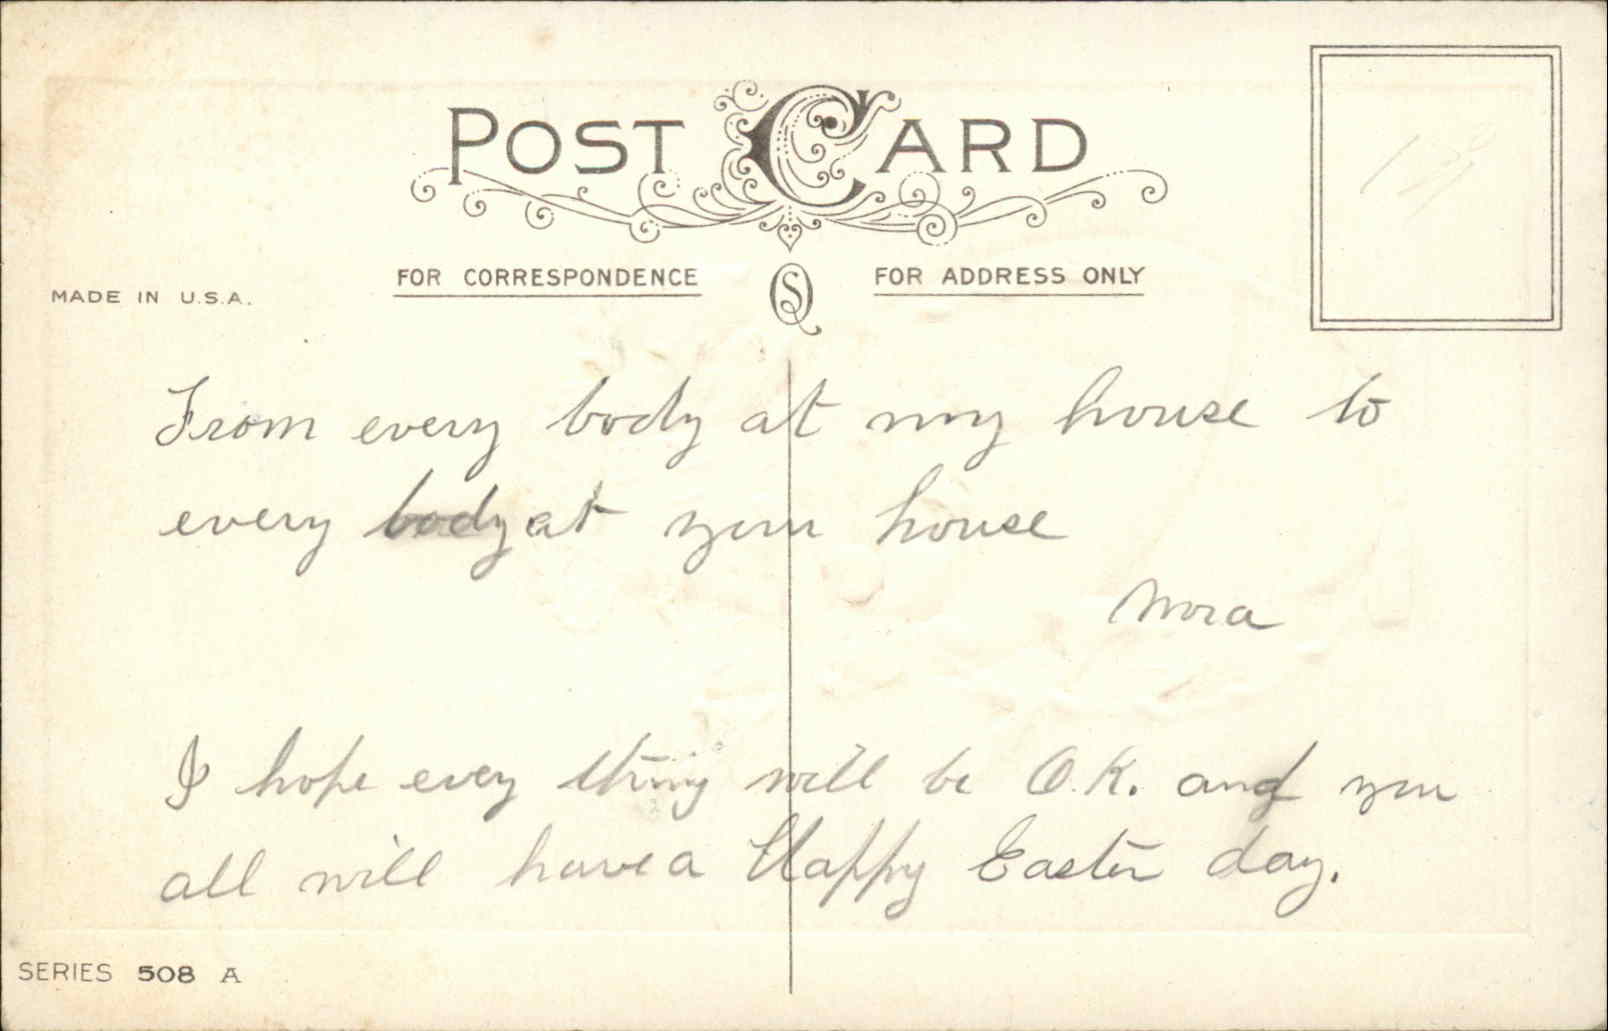 POST CARD
FOR CORRESPONDENCE
FOR ADDRESS ONLY
MADE IN U.S.A.
From every body at my house to
every body at your house
Nora
I hope every thing will be O.K. and you
all will have a Happy Easter day.
SERIES 508 A